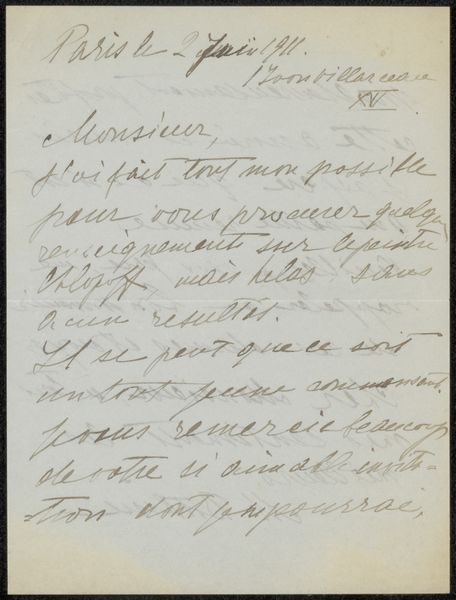 Paris le 2 Juin 1911.
1 Yvon Villarceau
XVI
Monsieur,
J'ai fait tout mon possible
pour vous procurer quelque
renseignements sur le peintre
mais helas sans
aucun resultat.
Il se peut que ce soit
un tout jeune commensant
je vous remercie beaucoup
de votre si aimable invita-
-tion dont je n'pourrai,